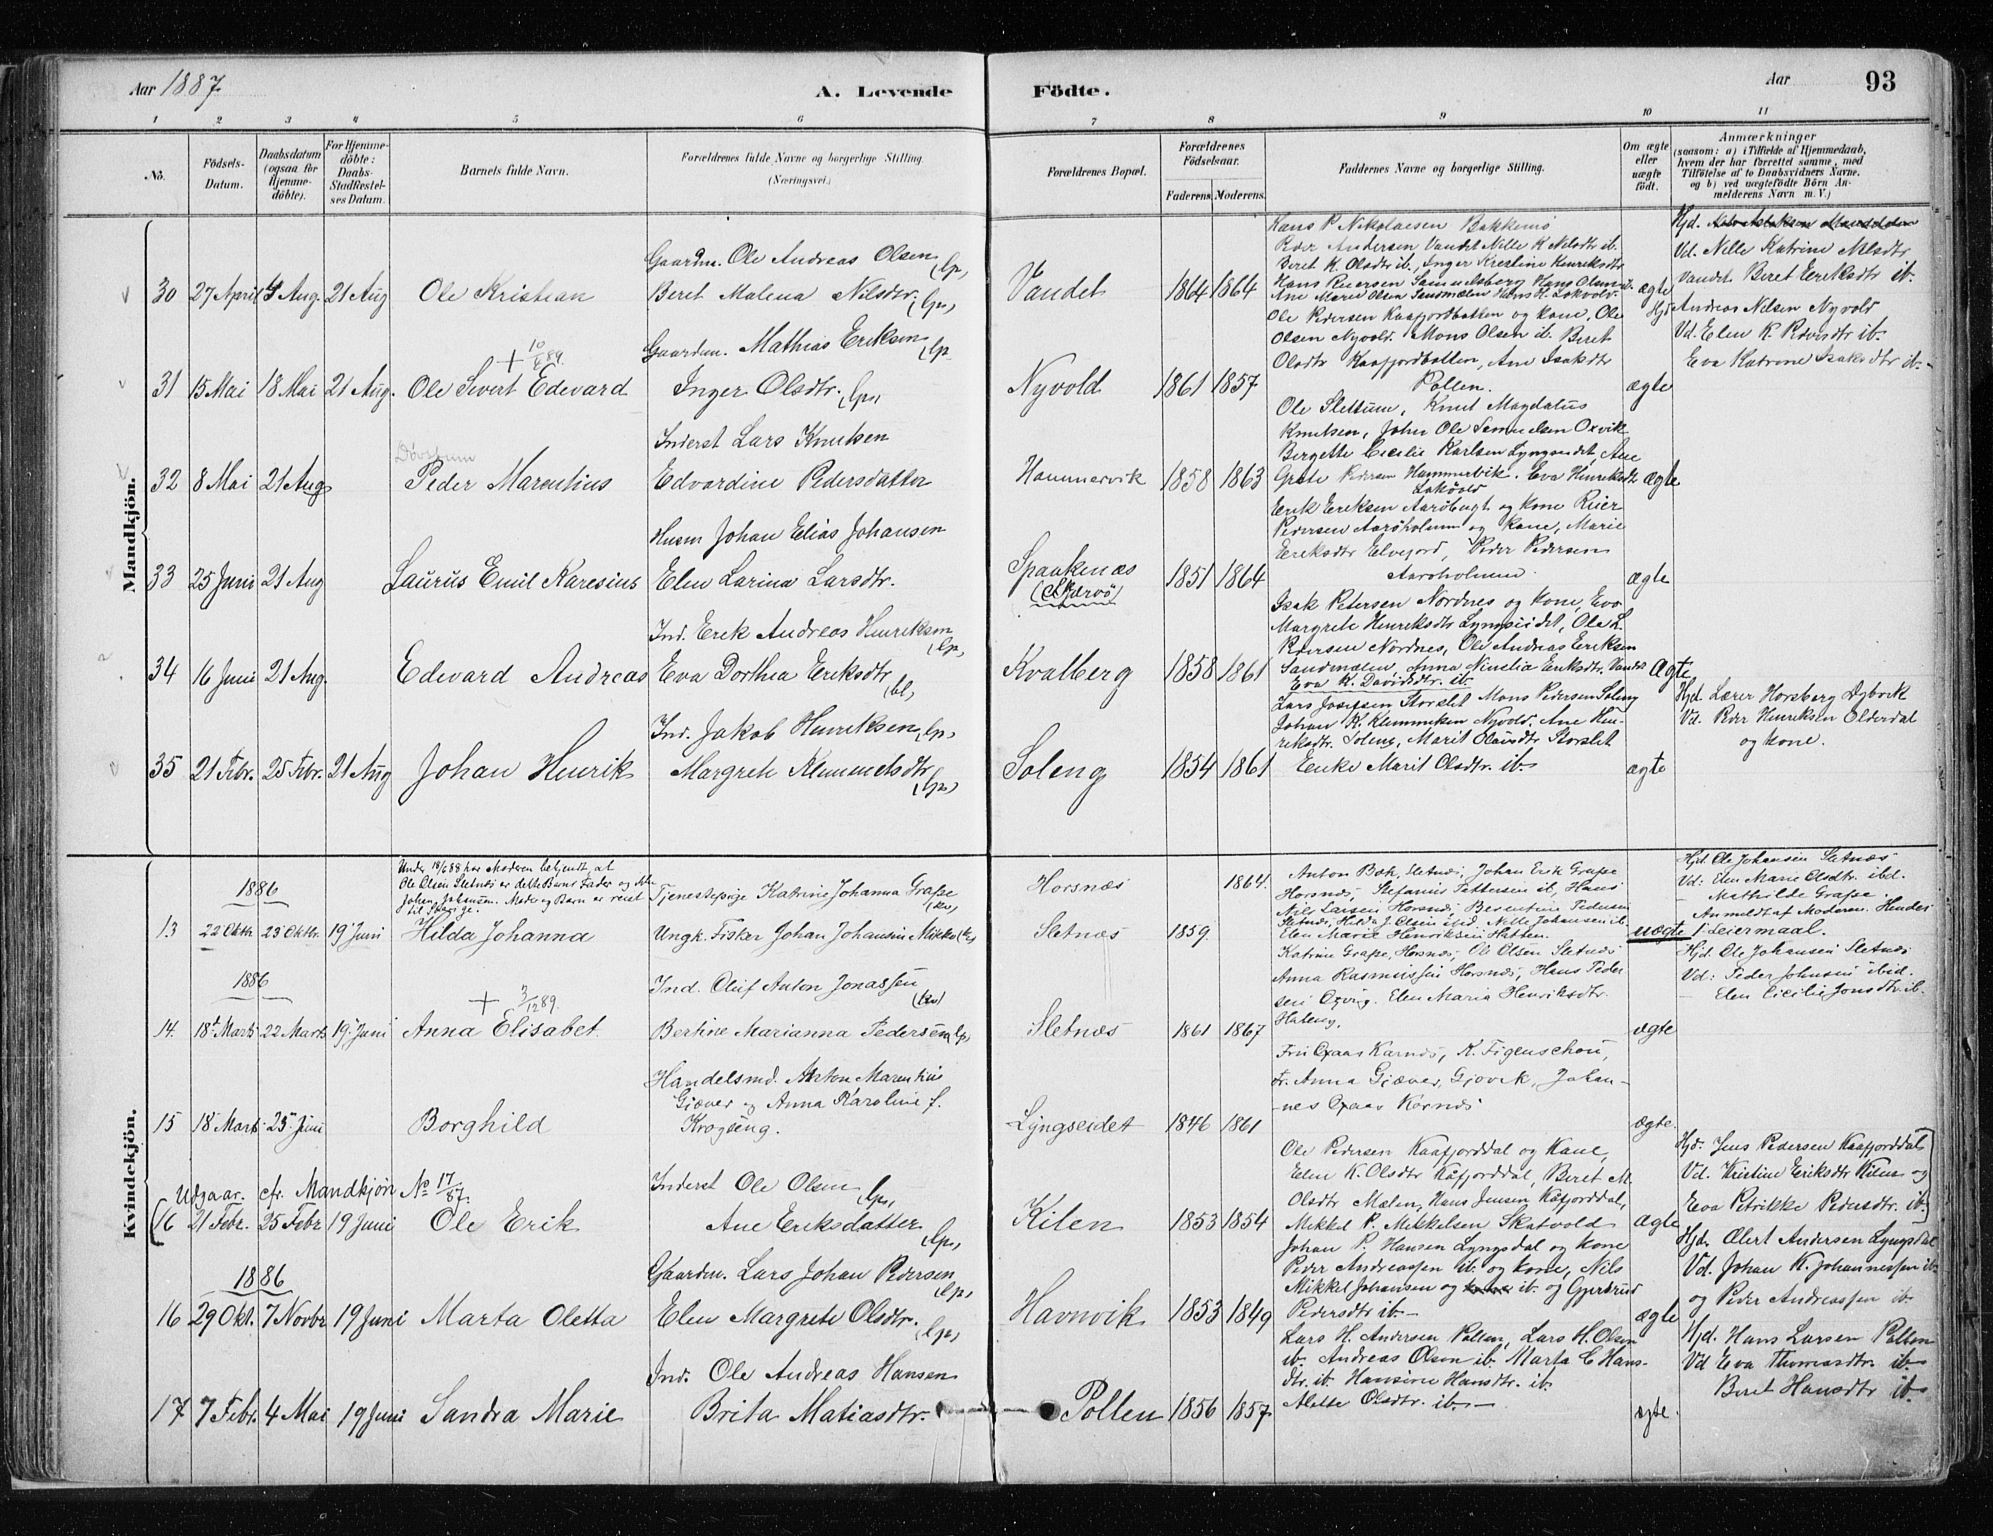 Aar 1887.
A. Levende Födte.
Aar 93
1 2 3 4 5 6 7 8 9 10 11
No. Födsels-Datum. Daabsdatum (ogsaa for Hjemme-döbte). For Hjemme-döbte: Daabs-Stadfæstel-ses Datum. Barnets fulde Navn. Forældrenes fulde Navne og borgerlige Stilling. (Næringsvei.) Forældrenes Bopæl. Forældrenes Födselsaar. Faderens. Moderens. Faddernes Navne og borgerlige Stilling. Om ægte eller uægte födt. Anmærkninger (saasom: a) i Tilfælde af Hjemmedaab, hvem der har forrettet samme, med Tilföielse af to Daabsvidners Navne, og b) ved uægtefödte Börn Anmelderens Navn m. V.)
Mandkjön.
Hans P Nikolaisen Bakkemo
Peder Andersen Vandet Nille K Nilsdtr ib.
Beret K. Olsdtr ib. Inger Kristine Henriksdtr
Gaardm. Ole Andreas Olsen (lp)
30 27 April 4 Aug. 21 Aug Ole Kristian Beret Malena Nilsdtr. (lp) Vandet 1864 1864 ægte
Hjd.
Vd. Nille Katrine Nilsdtr
Vandet Beret Eriksdtr ib.
Gaardm. Mathias Eriksen (lp
+ 10/6 89.
31 15 Mai 18 Mai 21 Aug. Ole Sivert Edevard Inger Olsdtr. (lp) Nyvold 1861 1857 ægte
Ole Pedersen Kaafjordbotten og kone, Ole
Olsen Nyvold. Mons Olsen ib. Beret
Olsdtr Kaafjordbotten, Ane Isaksdtr
Pollen.
Hjd Andreas Nilsen Nyvold
Vd. Elen K. ib.
Eva Katrine Isaksdtr ib.
Inderst Lars Knutsen
Døvstum
32 8 Mai 21 Aug Peder Marentius Edvardine Pedersdatter Hammervik 1858 1863 ægte
Ole Slettum, Knut Magdalus
Knutsen, John Ole Samuelsen Oxvik
Bergette Cecilie Karlsen Lyngseidet Ane
Grete Pedersen Hammervik. Eva Henriksdtr
Lokvold
Husm Johan Elias Johansen
33 25 Juni 21 Aug Laurus Emil Karesius Elen Larina Larsdtr. Spaakenæs (Skjærvö) 1851 1864 ægte
Erik Eriksen Aaröbugt og kone
Pedersen Aaröholmen og kone, Marie
Eriksdtr Elvejord, Peder Pedersen
Aaroholmen.
Ind. Erik Andreas Henriksen (lp)
34 16 Juni 21 Aug. Edevard Andreas Eva Dorthea Eriksdtr (bl) Kvalberg 1858 1861 Ægte
Isak Petersen Nordnes og kone, Eva
Margrete Henriksdtr Lyngseidet, Ole L.
Pedersen Nordnes, Ole Andreas Eriksen
Sandmælen, Anna Eriksdtr. Vandet
Eva K. Davidsdtr. ib.
Ind. Jakob Henriksen (lp)
35 21 Febr. 25 Febr. 21 Aug Johan Henrik Margrete Klemmetsdtr (lp) Soleng 1854 1861 ægte
Lars Josefsen Storslet Mons Pedersen Soleng
Johan K. Klemmetsen Nyvold. Ane Hen-
riksdtr. Soleng, Marit Olausdtr Storslet
Enke Marit Olsdtr. ib.
Hjd. Lærer Horsberg Dybvik
Vd. Peder Henriksen Olderdal
og kone.
Kvindekjön.
Under 18/6 88 har Moderen bekjendt, at
Ole Olsen Sletnæs er dette Barns Fader og ikke
Johan Johansen. Moder og Barn er reist
til
1886
Tjenestepige Katrine Johanna Grape (kv) Horsnæs 1864.
13 22 Oktbr. 23 Oktbr. 19 Juni Hilda Johanna Ungk. Fisker Johan Johansen Mikko (kv) Sletnæs 1859. uægte
Anton Bok, Sletnæs, Johan Erik Grape
Horsnæs, Stefanus Pettersen ib, Hans
Nils Larsen Horsnæs, Berentine Pedersen
Sletnæs, Hilda J. Olsen ibid, Nille Johansen ib.
Elen Marie Henriksen Hatten.
Hjd Ole Johansen Sletnæs
Vd: Elen Marie Olsdtr. ibd.
Mathilde Grape.
Anmeldt af Moderen. Hendes
1ste Leiermaal.
1886
Ind. Oluf Anton Jonassen (kv)
+ 3/12 89.
14. 18 Marts 22 Marts 19 Juni Anna Elisabet. Bertine Marianna Pedersen (lp) Sletnæs 1861 1867 ægte
Katrine Grape, Horsnæs, Ole Olsen Sletnæs
Anna Rasmussen Horsnæs, Hans Peder
sen Oxvig. Elen Maria Henriksdtr.
Hateng.
Hjd Ole Johansen Sletnæs
Vd: Peder Johnsen ibid.
Elen Cicilie Jonsdtr. ib.
Handelsmd. Anton Marentius
Giæver og Anna Karoline f.
15 18 Marts 25 Juni Borghild Krogseng. Lyngseidet 1846 1861 ægte.
Fru Gaas Karnæs, K. Figenschou,
fr. Anna Giæver, Gjøvik, Johan-
nes Gaas Karnæs
Udgaar. cfr. Mandkjön No 17/87.
Inderst Ole Olsen (lp)
(6 21 Febr. 25 Febr 19 Juni Ole Erik Ane Eriksdatter (lp) Kilen 1853 1854 ægte
Ole Pedersen Kaafjorddal og Kone,
Elen K. Olsdtr Kåfjorddal, Beret M.
Olsdtr Mælen, Hans Jensen Kåfjorddal,
Mikkel P. Mikkelsen Skatvold
Hjd. Jens Pedersen Kaafjorddal
Vd. Kristine Eriksdtr Kilen og
Eva Petrikke Pedersdtr. ib.
1886
Gaardm. Lars Johan Pedersen (lp)
16 29 Okt. 7 Novbr 19 Juni Marta Oletta Elen Margrete Olsdtr. (lp) Havnvik 1853 1849 ægte
Johan P. Hansen Lyngsdal og kone
Peder Andreassen ib. og kone, Nils
Mikkel Johansen og ib. og Gjertrud
Pedersdtr ib.
Hjd. Olert Andersen Lyngsdal
Vd. Johan K. Johannessen ib
og Peder Andreassen ib.
Ind. Ole Andreas Hansen
17 7 Febr. 4 Mai 19 Juni Sandra Marie Brita Matiasdtr. Pollen 1856 1857 ægte.
Lars H. Andersen Pollen, Lars H. Olsen
ib. Andreas Olsen ib. Marta C Hans-
dtr. ib. Hansine Hansdtr. ib.
Alette Olsdtr. ib.
Hjd. Hans Larsen Pollen
Vd Eva Thomasdtr. ib
Beret Hansdtr ib